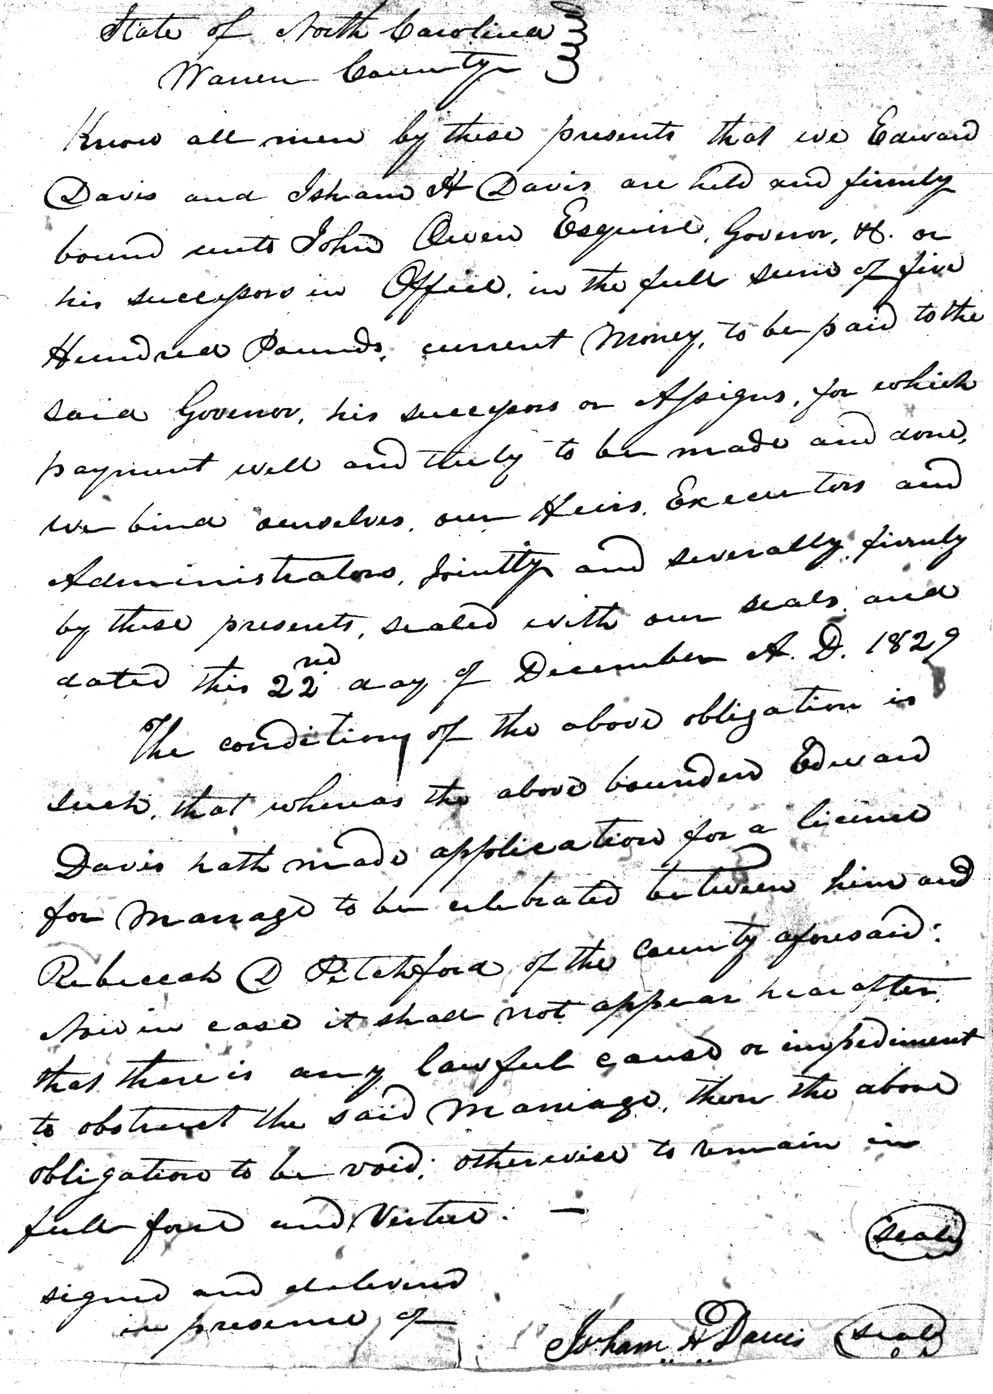 State of North Carolina
Warren County
Know all men by these presents that we Edward
Davis and Isham H Davis are held and firmly
bound unto John Owen Esquire, Govenor, &c. or
his successors in Office, in the full sum of five
Hundred Pounds, current Money, to be paid to the
said Govenor, his successors or Assigns, for which
payment well and truly to be made and done,
we bind ourselves, our Heirs, Executors and
Administrators, Jointly and severally, firmly
by these presents, sealed with our seals, and
dated this 22nd day of December A. D. 1829
The condition of the above obligation is
such, that whereas the above bounden Edward
Davis hath made application for a licence
for Marriage to be celebrated between him and
Rebeccah D Pitchford of the County aforesaid:
Now in case it shall not appear hereafter,
that there is any lawful cause or impediment
to obstruct the said Marriage, then the above
obligation to be void; otherwise to remain in
full force and Vertue. —
(seal)
signed and delivered
in presence of
Isham H Davis (seal)